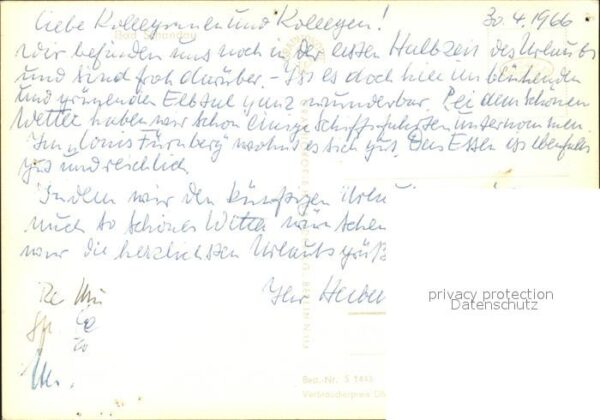 Liebe Kolleginnen und Kollegen! 30.4.1966
Bad Schandau
Wir befinden uns noch in der ersten Halbzeit des Urlaubs
und sind froh darüber. - Ist es doch hier im blühenden
und grünenden Elbtal ganz wunderbar. Bei dem schönen
Wetter haben wir schon einige Schiffsfahrten unternommen.
Im "Louis Fürnberg" wohnt es sich gut. Das Essen ist ebenfalls
gut und reichlich.
Indem wir den künftigen
auch so schönes Wetter wünschen
wir die herzlichsten Urlaubsgrüße
Ihr
privacy protection
Datenschutz
Best.-Nr. S 1443
Verbraucherpreis